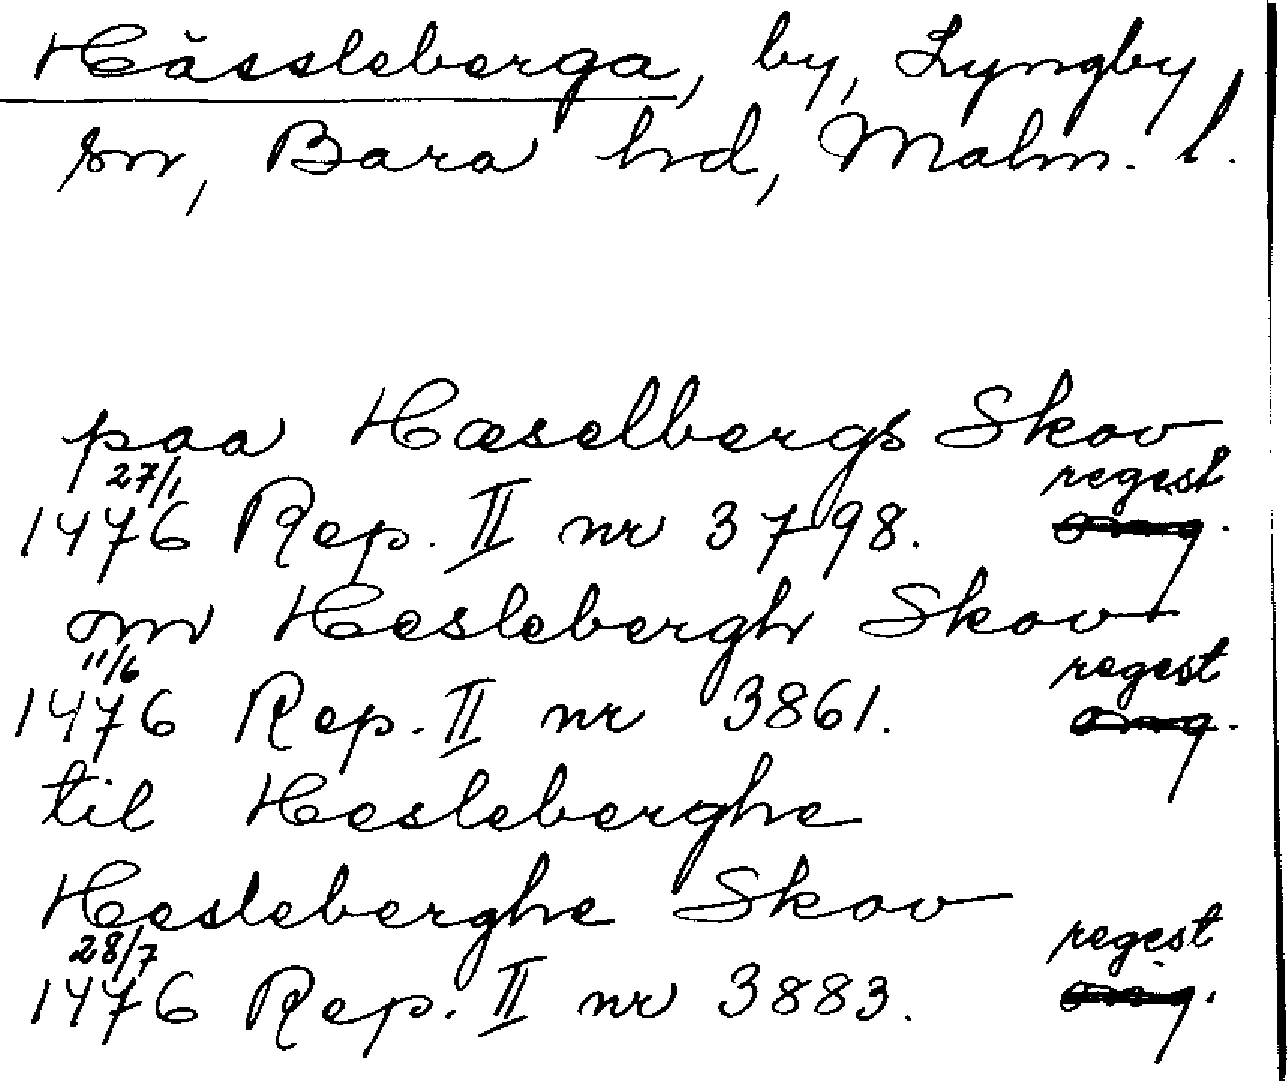 Hässleberga, by, Lyngby
sn, Bara hd, Malm. l.
paa Hæselbergs Skov
27/1 regest
1476 Rep. II nr 3798. omg.
om Heslebergh Skov
11/6 regest
1476 Rep. II nr 3861. omg.
til Hesleberghe
Hesleberghe Skov
28/7 regest
1476 Rep. II nr 3883. omg.